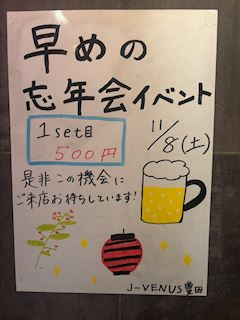 早めの
忘年会イベント
1set目
500円
11/8(土)
是非この機会に
ご来店お待ちしています!
J-VENUS豊田